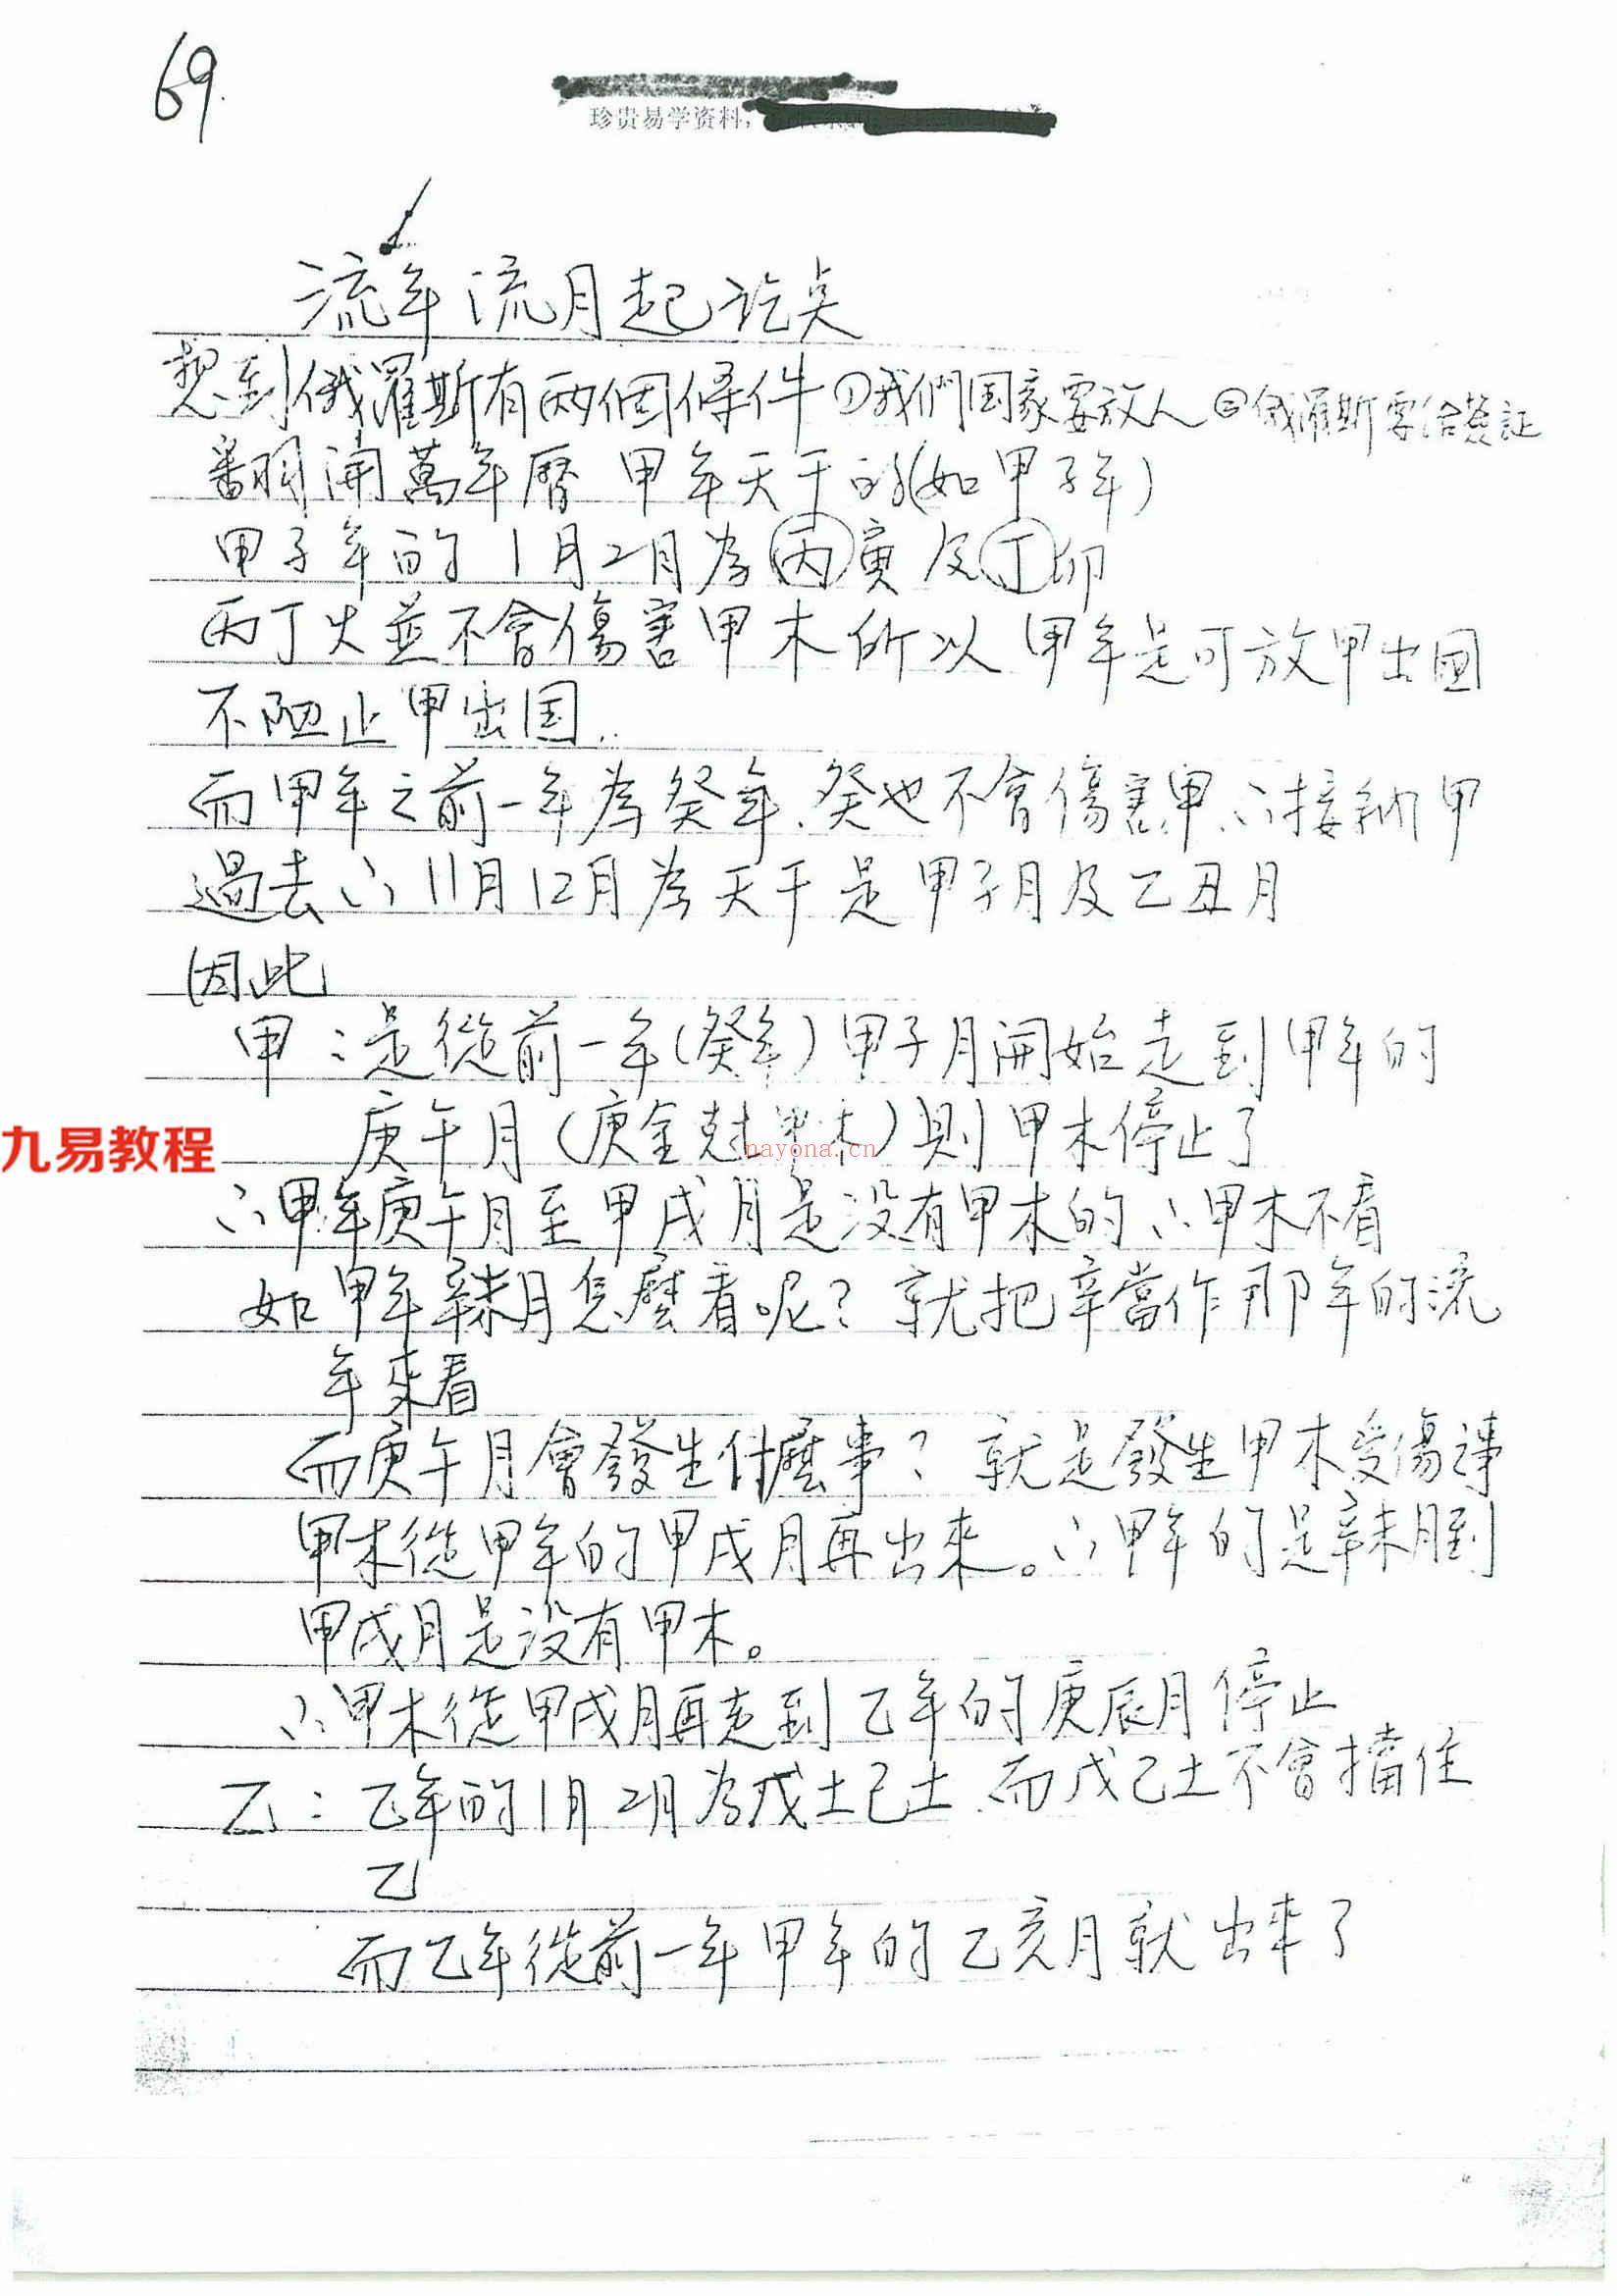 69.
珍贵易学资料，
流年流月起訖点
想到俄羅斯有两個條件①我們国家要放人②俄羅斯要给簽証
翻開萬年曆 甲年天干的(如甲子年)
甲子年的1月2月為丙寅及丁卯
丙丁火並不會傷害甲木所以甲年是可放甲出国
不阻止甲出国.
而甲年之前一年為癸年、癸也不會傷害甲∴接納甲
過去∴11月12月為天干是甲子月及乙丑月
因此
甲：是從前一年(癸年)甲子月開始走到甲年的
庚午月(庚金尅甲木)則甲木停止了
九易教程
nayona.cn
∴甲年庚午月至甲戌月是没有甲木的∴甲木不看
如甲年辛未月怎麼看呢？就把辛當作那年的流
年來看
而庚午月會發生什麼事？就是發生甲木受傷事
甲木從甲年的甲戌月再出來。∴甲年的是辛未月到
甲戌月是没有甲木。
∴甲木從甲戌月再走到乙年的庚辰月停止
乙：乙年的1月2月為戊土己土而戊己土不會擋住
乙
而乙年從前一年甲年的乙亥月就出來了